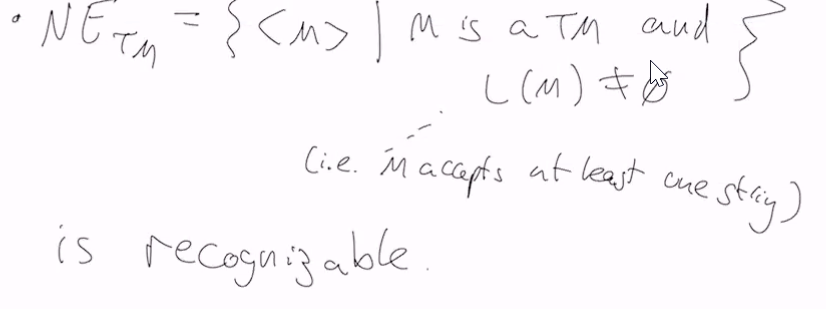 • NE_TM = {<M> | M is a TM and
L(M) ≠ ∅}
(i.e. M accepts at least one string)
is recognizable.